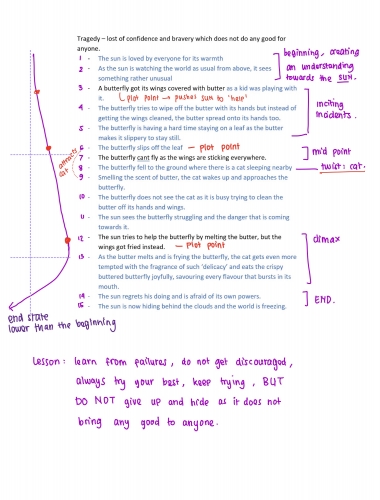 Tragedy – lost of confidence and bravery which does not do any good for
anyone.
1 - The sun is loved by everyone for its warmth
2 - As the sun is watching the world as usual from above, it sees
something rather unusual
3 - A butterfly got its wings covered with butter as a kid was playing with
it. plot point → pushes sun to 'help'
4 - The butterfly tries to wipe off the butter with its hands but instead of
getting the wings cleaned, the butter spread onto its hands too.
5 - The butterfly is having a hard time staying on a leaf as the butter
makes it slippery to stay still.
6 - The butterfly slips off the leaf – plot point
7 - The butterfly cant fly as the wings are sticking everywhere.
8 - The butterfly fell to the ground where there is a cat sleeping nearby
9 - Smelling the scent of butter, the cat wakes up and approaches the
butterfly.
10 - The butterfly does not see the cat as it is busy trying to clean the
butter off its hands and wings.
11 - The sun sees the butterfly struggling and the danger that is coming
towards it.
12 - The sun tries to help the butterfly by melting the butter, but the
wings got fried instead. – plot point
13 - As the butter melts and is frying the butterfly, the cat gets even more
tempted with the fragrance of such 'delicacy' and eats the crispy
buttered butterfly joyfully, savouring every flavour that bursts in its
mouth.
14 - The sun regrets his doing and is afraid of its own powers.
15 - The sun is now hiding behind the clouds and the world is freezing.
beginning, creating
an understanding
towards the sun.
inciting
incidents.
mid point
twist: cat.
attracts
cat
climax
END.
end state
lower than the beginning
Lesson: learn from failures, do not get discouraged,
always try your best, keep trying, BUT
DO NOT give up and hide as it does not
bring any good to anyone.